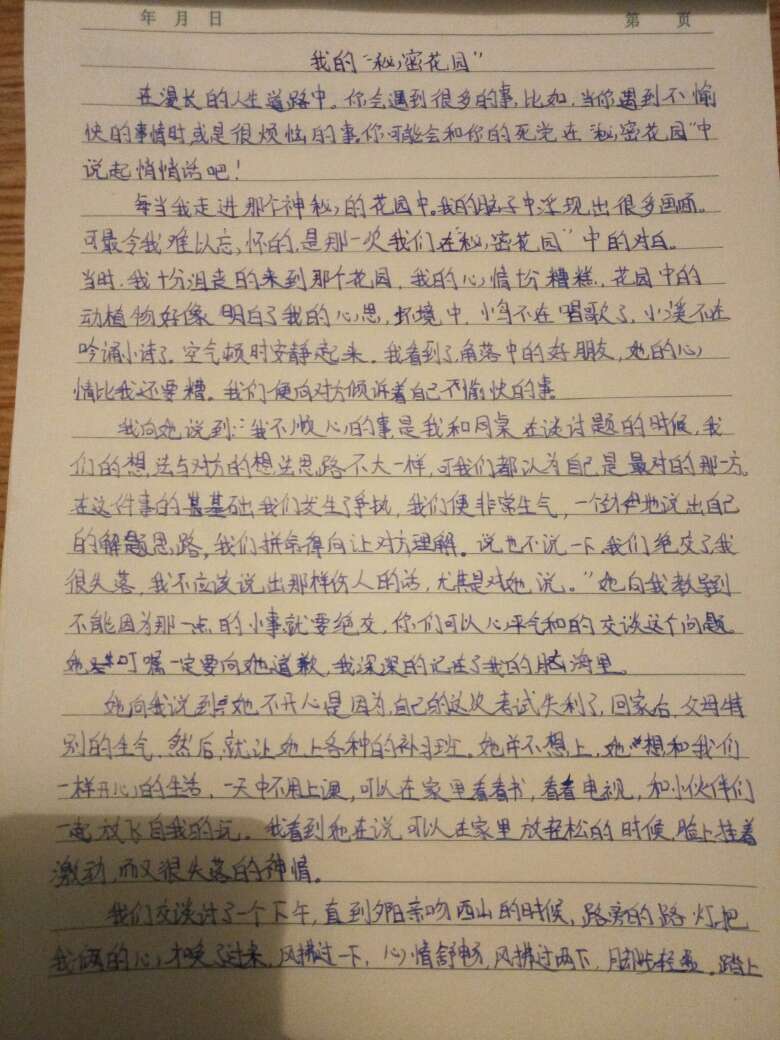 年 月 日 第 页
我的“秘密花园”
在漫长的人生道路中，你会遇到很多的事，比如，当你遇到不愉
快的事情时或是很烦恼的事，你可能会和你的死党在“秘密花园”中
说起悄悄话吧！
每当我走进那个神秘的花园中。我的脑子中浮现出很多画面。
可最令我难以忘怀的，是那一次我们在“秘密花园”中的对白。
当时，我十分沮丧的来到那个花园，我的心情十分糟糕，花园中的
动植物好像明白了我的心思，环境中，小鸟不在唱歌了，小溪不在
吟诵小诗了，空气顿时安静起来，我看到了角落中的好朋友，她的心
情比我还要糟。我们便向对方倾诉着自己不愉快的事
我向她说到：“我不顺心的事是我和同桌在谈讨题的时候，我
们的想法与对方的想法思路不大一样，可我们都认为自己是最对的那一方。
在这件事的基础我们发生了争执，我们便非常生气，一个地说出自己
的解题思路，我们拼命得向让对方理解。说也不说一下，我们绝交了我
很失落，我不应该说出那样伤人的话，尤其是对她说。”她向我教导到
不能因为那一点的小事就要绝交，你们可以心平气和的交谈这个问题
她叮嘱一定要向她道歉，我深深的记在了我的脑海里。
她向我说到她不开心是因为，自己的这次考试失利了，回家后，父母特
别的生气，然后，就让她上各种的补习班。她并不想上，她想和我们
一样开心的生活，一天中不用上课，可以在家里看看书，看看电视，和小伙伴们
一起放飞自我的玩。我看到她在说可以在家里放轻松的时候，脸上挂着
激动，而又很失落的神情。
我们交谈讨了一个下午，直到夕阳亲吻西山的时候，路旁的路灯把
我俩的心才唤了过来，风拂过一下，心情舒畅，风拂过两下，脚步轻盈，踏上